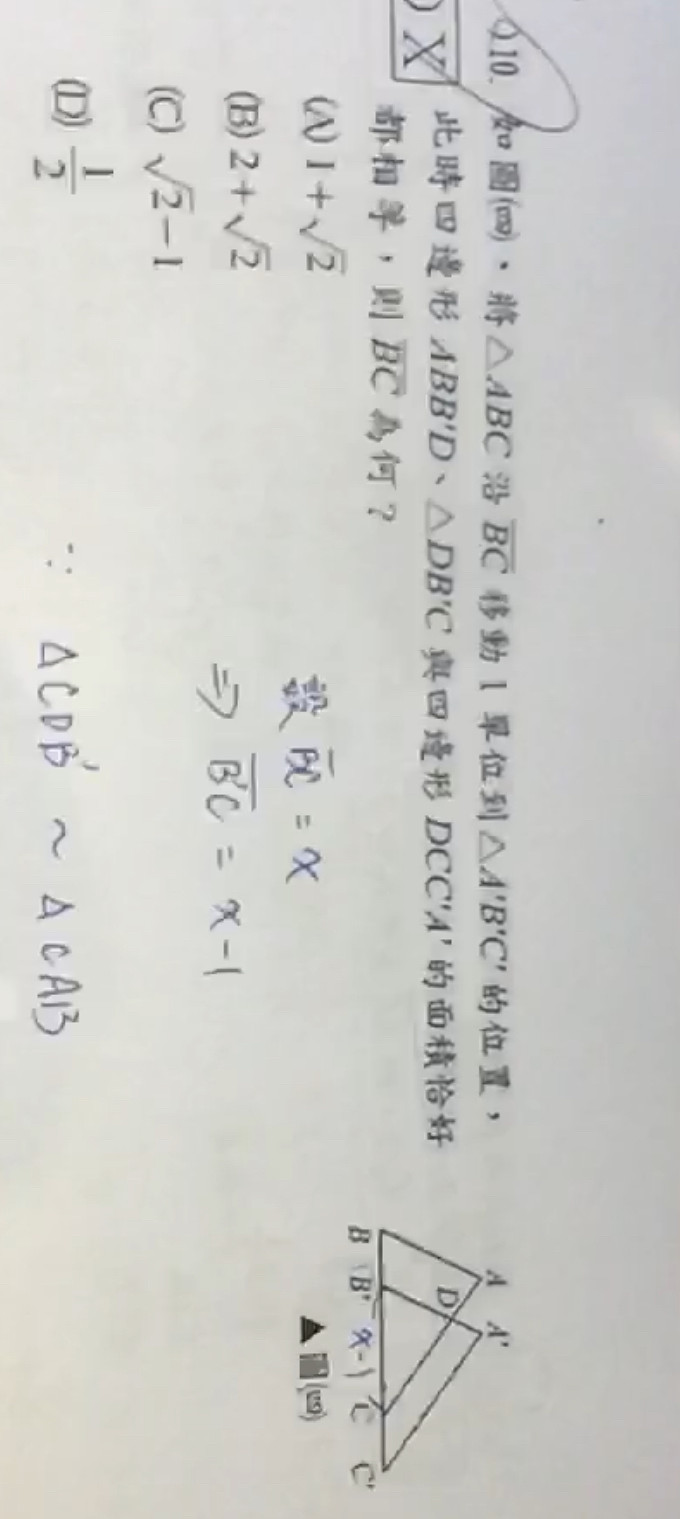 10. 如圖(四)，將△ABC 沿 BC 移動 1 單位到△A'B'C' 的位置，
X 此時四邊形 ABB'D、△DB'C 與四邊形 DCC'A' 的面積恰好
都相等，則 BC 為何？
(A) 1+√2
(B) 2+√2
(C) √2−1
(D) 1/2
設 BC = x
⇒ B'C = x-1
∵ △CDB' ~ △CAB
A A'
D
B B' x-1 C C'
▲圖(四)